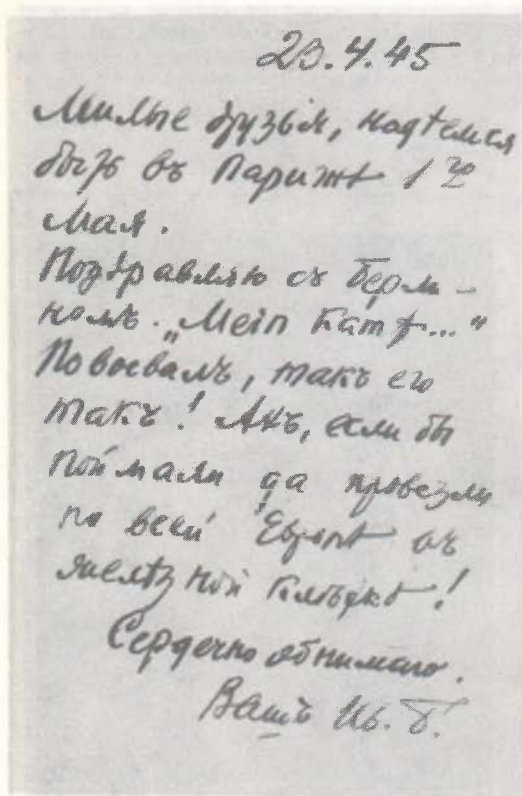 23.4.45
Милые друзья, надѣемся
быть въ Парижѣ 1 го
Мая.
Поздравляю съ Берли-
номъ. „Mein Kampf..."
Повоевалъ, такъ его
такъ! Ахъ, если бы
поймали да провезли
по всей Европѣ въ
желѣзной клѣткѣ!
Сердечно обнимаю.
Вашъ Ив. Б.